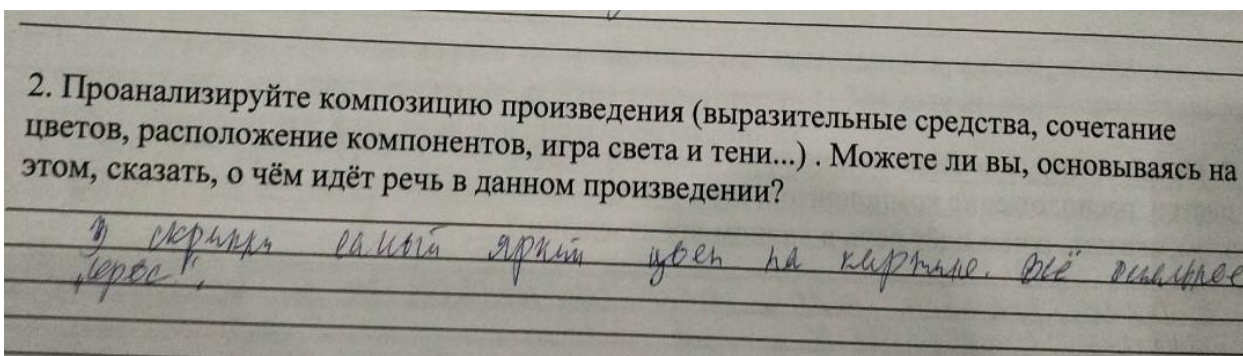 2. Проанализируйте композицию произведения (выразительные средства, сочетание
цветов, расположение компонентов, игра света и тени...) . Можете ли вы, основываясь на
этом, сказать, о чём идёт речь в данном произведении?
у скрипки самый яркий цвет на картине. Всё остальное